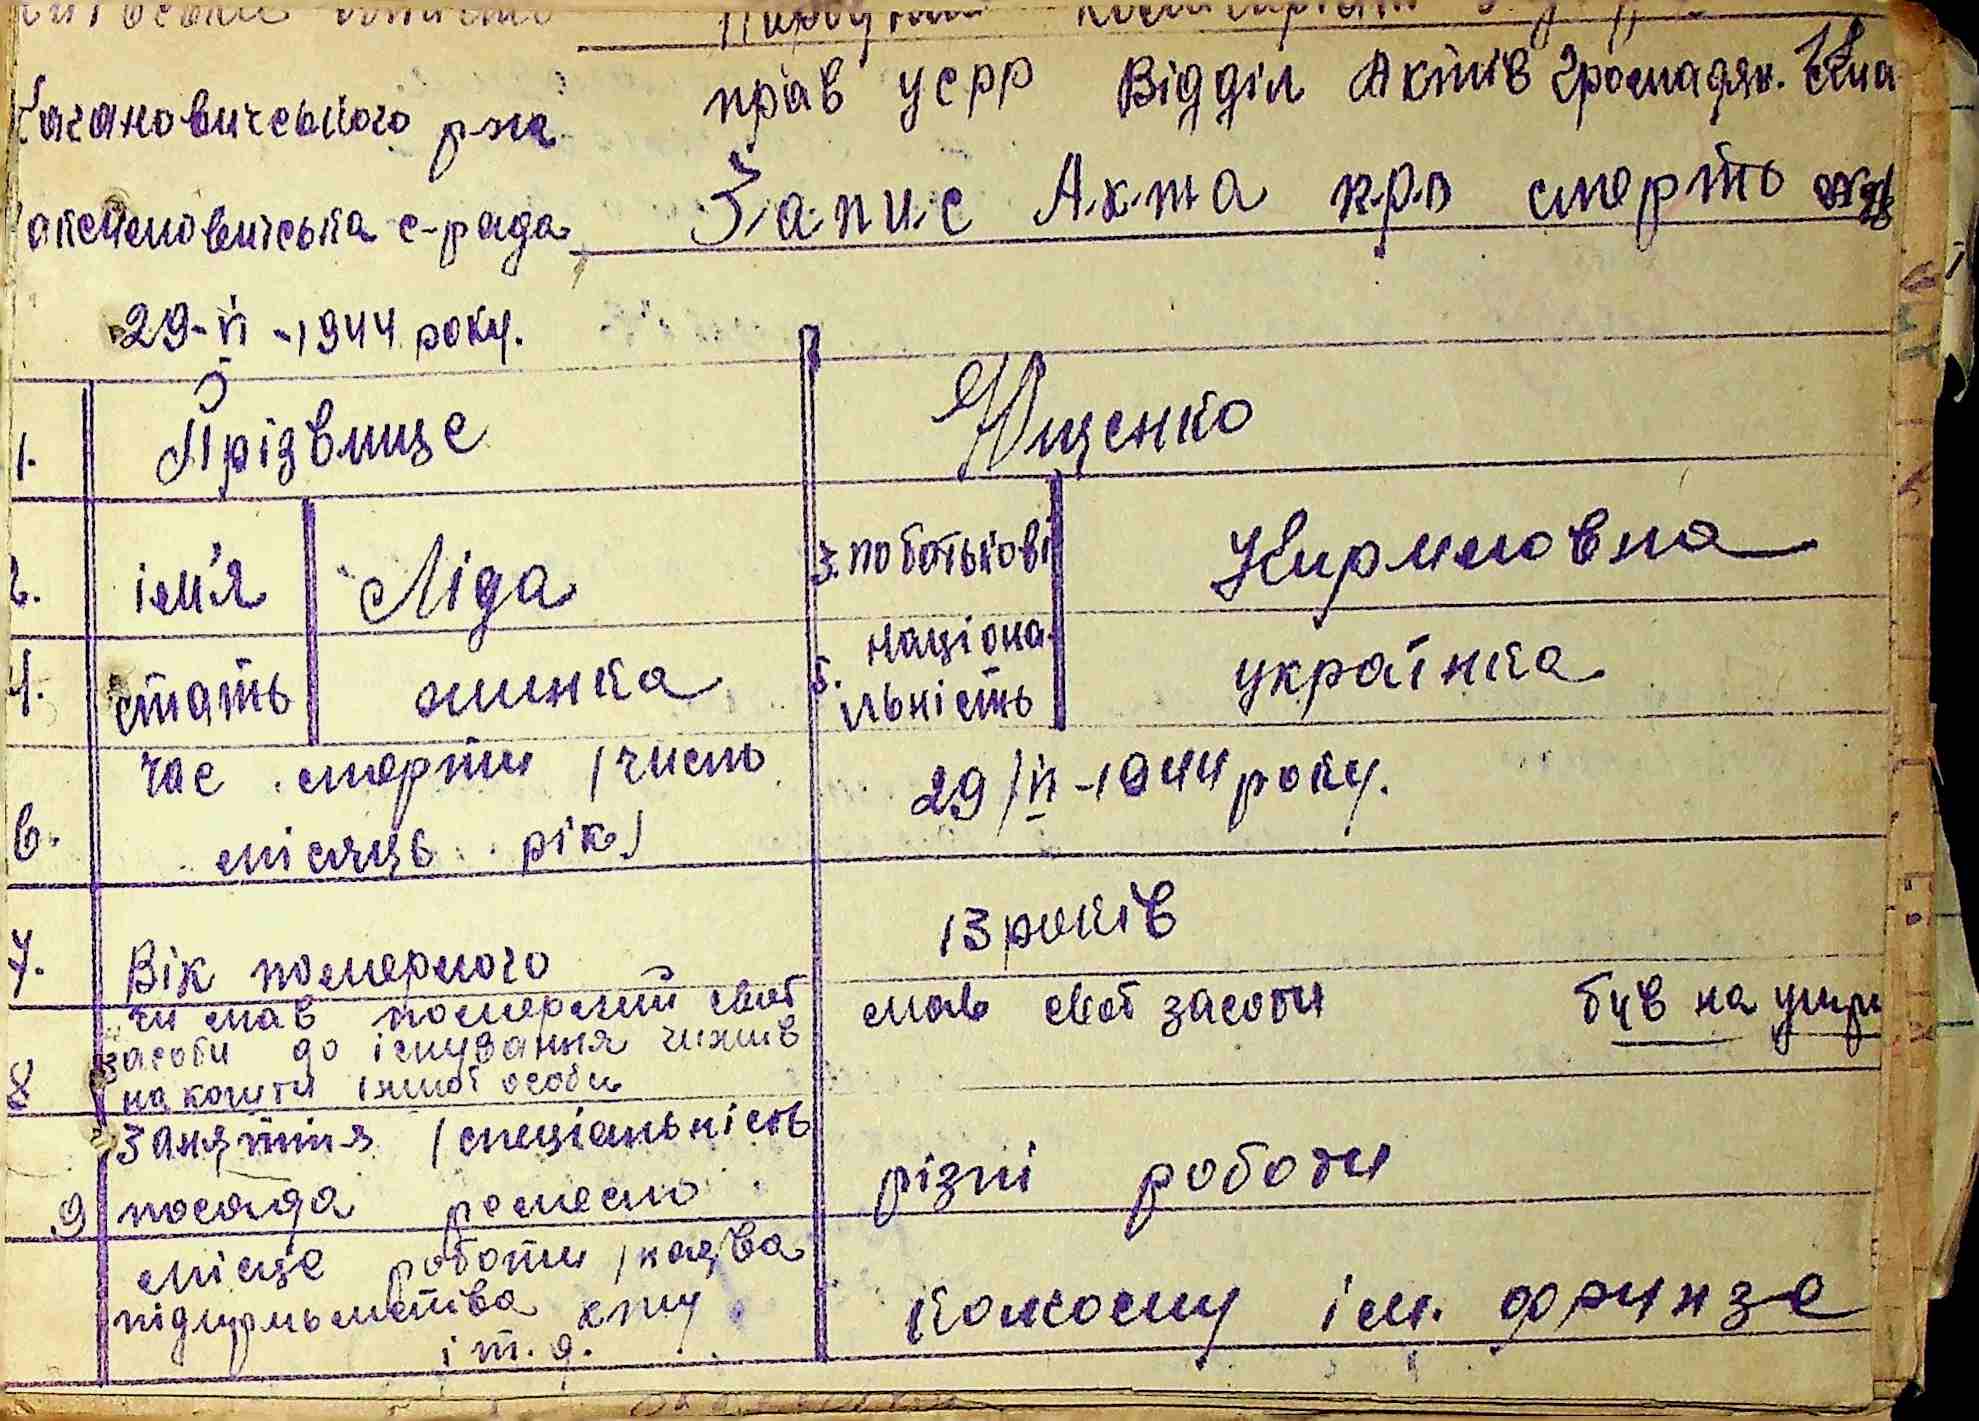 Кагановичського р-на
прав УСРР Відділ Актів Громадян. Стa
с-рада
Запис Акта про смерть
29-VI-1944 року.
1. Прізвище Ющенко
2. ім'я Ліда 3. по батькові Кириловна
4. стать жинка 5. націона
льність українка
6. час смерти /число
місяць рік/ 29/VI-1944 року.
7. Вік померлого 13 років
8 чи мав померлий свої
засоби до існування чи жив
на кошти іншої особи мав свої засоби був на утри
9. Заняття /спеціальність
посада ремесло різні роботи
місце роботи /назва
підприємства
і т. д. колгоспу ім. Фрунзе